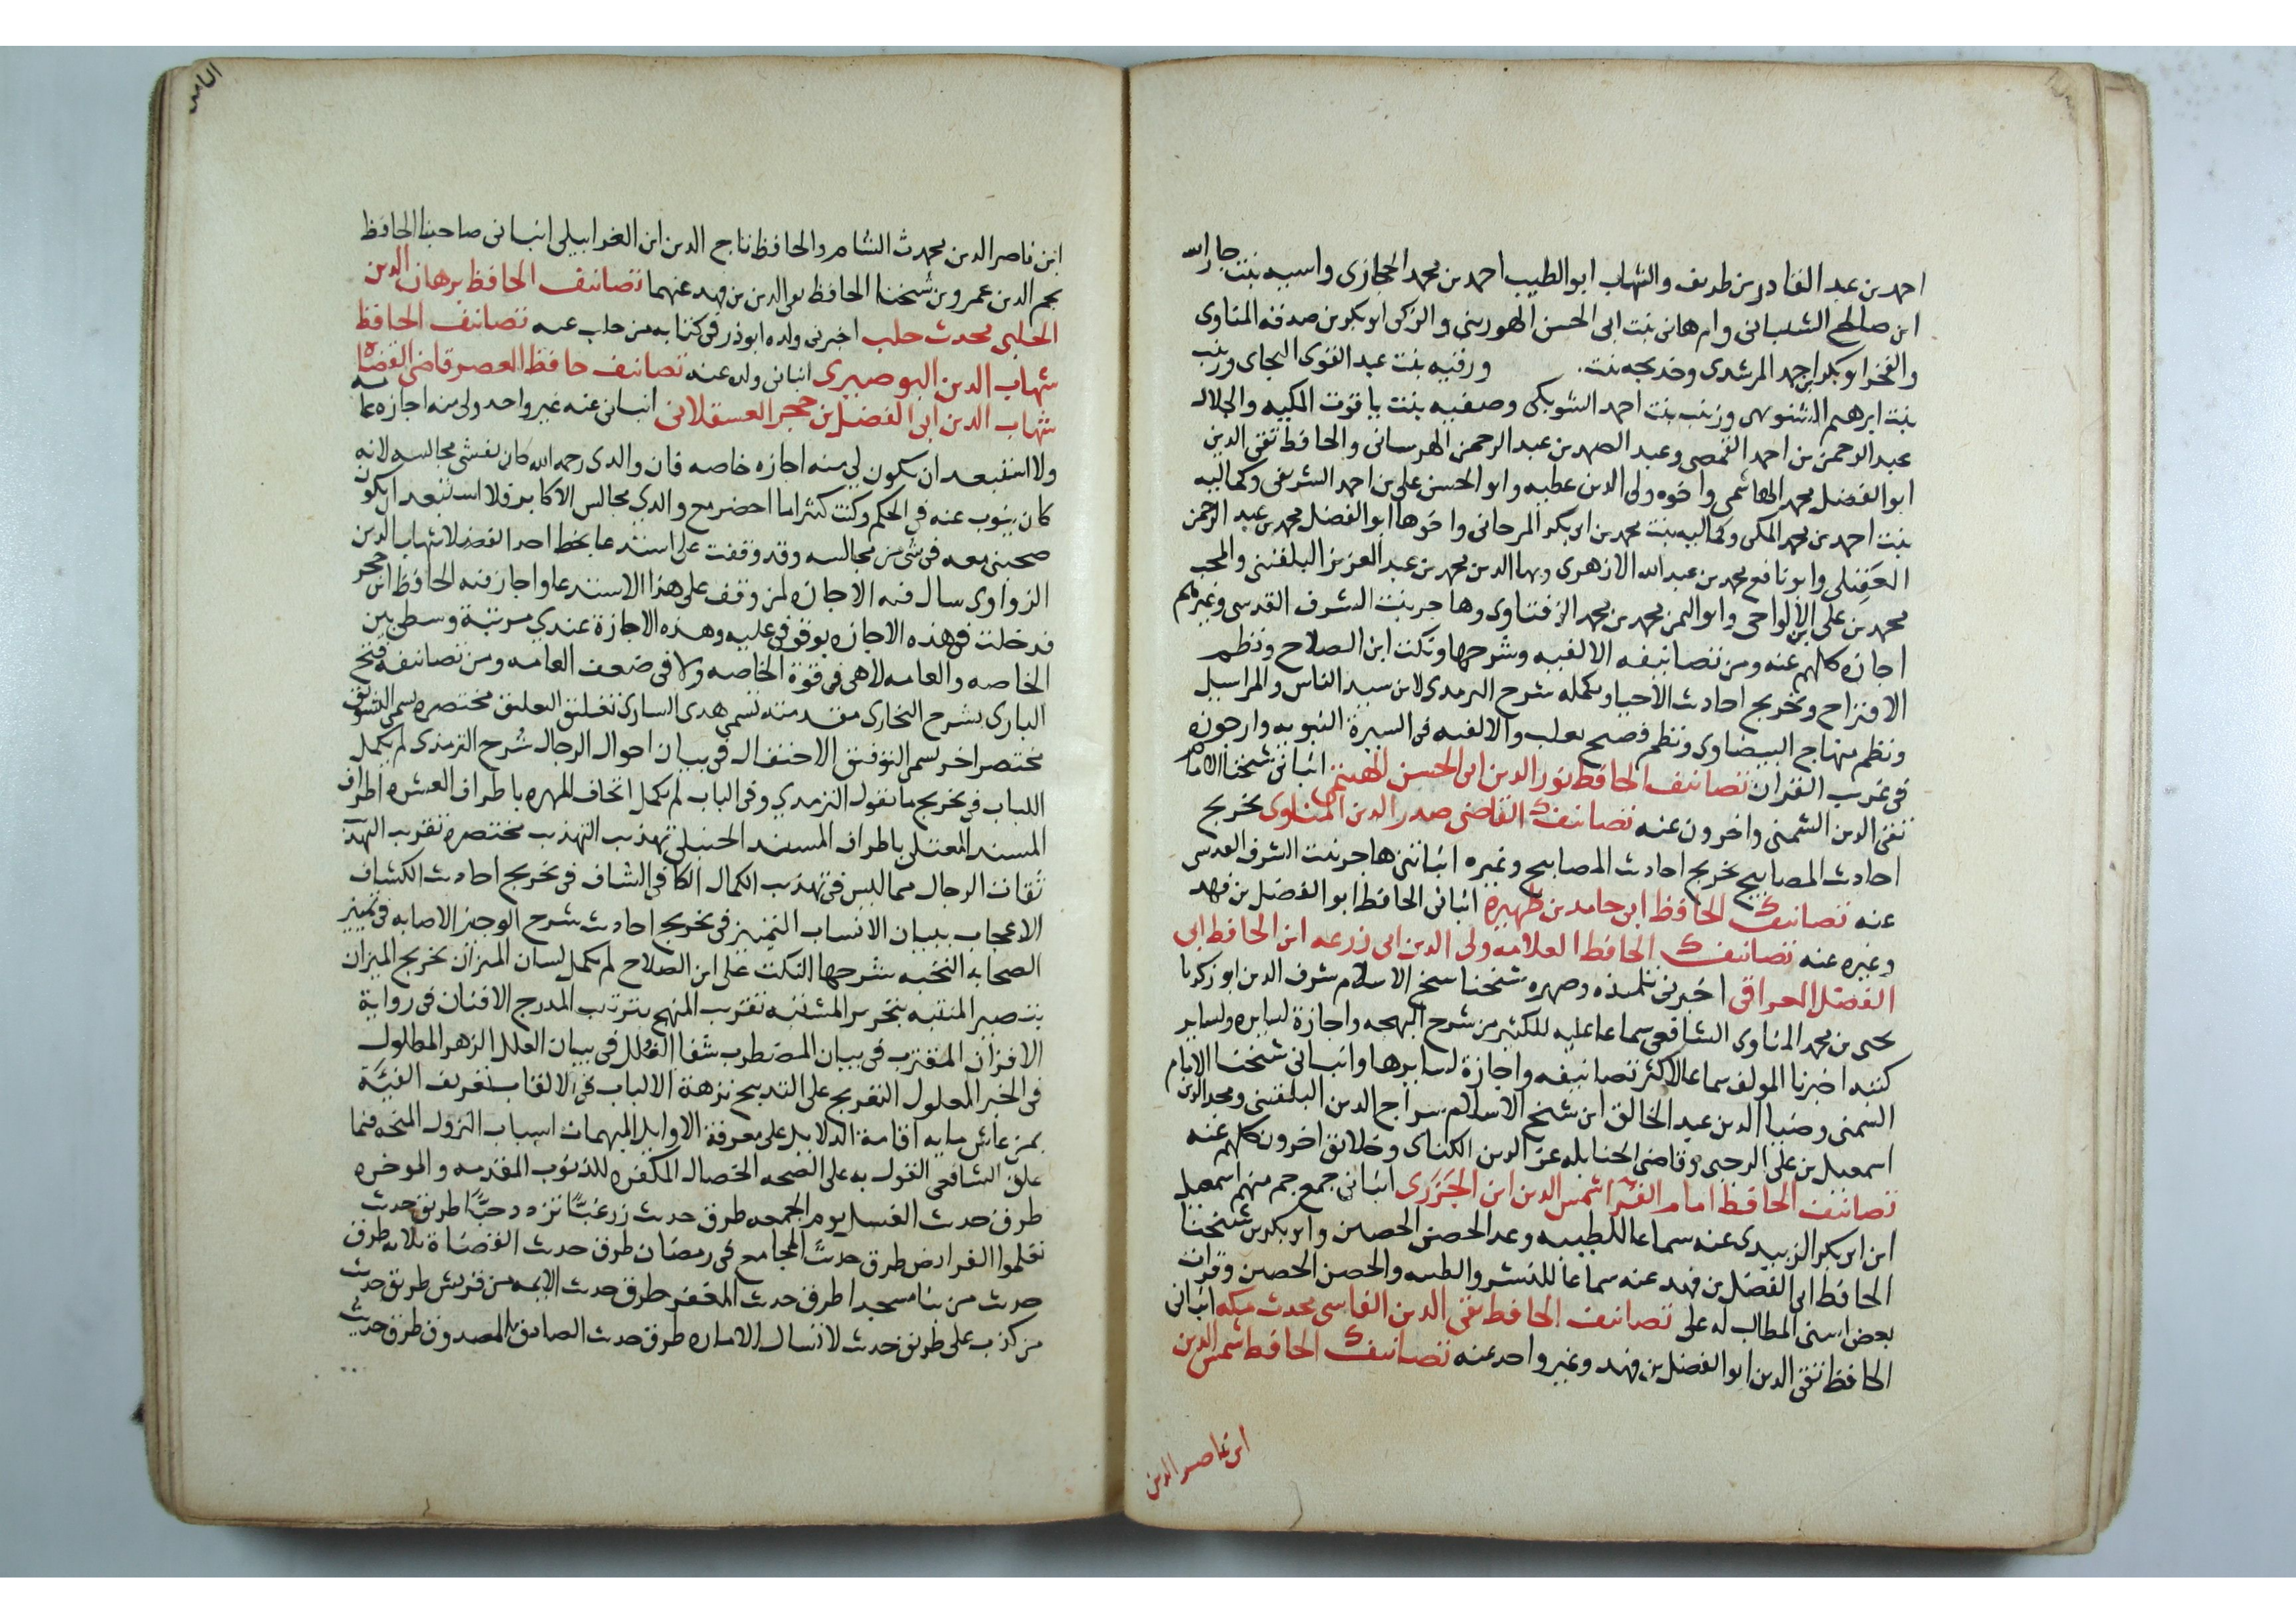 احمد بن عبد القادر بن طريف والشهاب ابو الطيب احمد بن محمد الحجازى واسيه بنت جار الله
ابن صالح الشيبانى وام هانى بنت ابى الحسن الهورينى والزكى ابو بكر بن صدقه المناوى
والفخر ابو بكر بن احمد المرشدى وخديجه بنت ورقيه بنت عبد القوى البجاى وزينب
بنت ابرهيم الشنويهى وزينب بنت احمد الشوبكى وصفيه بنت ياقوت المكيه والجلال
عبد الرحمن بن احمد القمصى وعبد الصمد بن عبد الرحمن الهرسانى والحافظ تقى الدين
ابو الفضل محمد الهاشمى واخوه ولى الدين عطيه وابو الحسن على بن احمد الشريفى وكماليه
بنت احمد بن محمد المكى وكماليه بنت محمد بن ابى بكر المرجانى واخوها ابو الفضل محمد بن عبد الرحمن
العَقِيلى وابو نافع محمد بن عبد الله الازهرى وبها الدين محمد بن عبد العزيز البلقينى والمحب
محمد بن على ابن الالواحى وابو اليمن محمد بن محمد الزفتاوى وهاجر بنت الشرف القدسى وغيرهم
اجازه كلهم عنه ومن تصانيفه الالفيه وشرحها ونكت ابن الصلاح ونظم
الاقتراح وتخريج احاديث الاحيا وتكمله شرح الترمدى لابن سيد الناس والمراسيل
ونظم منهاج البيضاوى ونظم فصيح ثعلب والالفيه فى السيرة النبويه وارجوزه
فى غريب القران تصانيف الحافظ نور الدين ابى الحسن الهيتمى انبانى شيخنا الامام
تقى الدين الشمنى واخرون عنه تصانيف القاضى صدر الدين المناوى تخريج
احاديث المصابيح تخريج احاديث المصابيح وغيره انبانتنى هاجر بنت الشرف القدسى
عنه تصانيف الحافظ ابن حامد بن ظهيرة انبانى الحافظ ابو الفضل بن فهد
وغيره عنه تصانيف الحافظ العلامه ولى الدين ابى زرعه ابن الحافظ ابى
الفضل العراقى اخبرنى تلميذه وصهره شيخنا شيخ الاسلام شرف الدين ابو زكريا
يحيى بن محمد المناوى الشافعى سماعا عليه للكثير من شرح البهجه واجازة لسايره ولساير
كتبه اخبرنا المولف سماعا لاكثر تصانيفه واجازة لسايرها وانبانى شيخنا الامام
الشمنى وضيا الدين عبد الخالق ابن شيخ الاسلام سراج الدين البلقينى ومجد الدين
اسمعيل بن على الرحبى وقاضى الحنابله عز الدين الكنانى وخلايق اخرون كلهم عنه
تصانيف الحافظ امام القرا شمس الدين ابن الجَزَرى انبانى جمع جم منهم اسمعيل
ابن ابى بكر الزبيدى عنه سماعا للطيبه وعد الحصن الحصين وابو بكر بن شيخنا
الحافظ ابى الفضل بن فهد عنه سماعا للنشر والطيبه والحصن الحصين وقرات
بعض اسنى المطالب له على تصانيف الحافظ تقى الدين الفاسى محدث مكه انبانى
الحافظ تقى الدين ابو الفضل بن فهد وغير واحد عنه تصانيف الحافظ شمس الدين
ابن ناصر الدين
ابن ناصر الدين محدث الشام والحافظ تاج الدين ابن الغرابيلى انبانى صاحبنا الحافظ
نجم الدين عمر وبن شيخنا الحافظ تقى الدين بن فهد عنهما تصانيف الحافظ برهان الدين
الحلبى محدث حلب اخبرنى ولده ابو ذر فى كتابه من حلب عنه تصانيف الحافظ
شهاب الدين البوصيرى انبانى ولده عنه تصانيف حافظ العصر قاضى القضاه
شهاب الدين ابى الفضل بن حجر العسقلانى انبانى عنه غير واحد ولى منه اجازه عامه
ولا استبعد ان يكون لى منه اجازه خاصه فان والدى رحمه الله كان يغشى مجالسه لانه
كان ينوب عنه فى الحكم وكنت كثيرا ما احضر مع والدى مجالس الاكابر فلا استبعد ان يكون
صحبنى معه فى شى من مجالسه وقد وقفت على استدعا بخط احد الفضلا شهاب الدين
الزواوى سال فيه الاجازه لمن وقف على هذا الاستدعا واجاز فيه الحافظ ابن حجر
فدخلت فى هذه الاجازه بوقوفى عليه وهذه الاجازة عندي مرتبة وسطى بين
الخاصه والعامه لا هى فى قوة الخاصه ولا فى ضعف العامه ومن تصانيفه فتح
البارى بشرح البخارى مقدمته تسمى هدى السارى تغليق التعليق مختصره يسمى التشويق
مختصر اخر يسمى التوفيق الاحتفال فى بيان احوال الرجال شرح الترمذى لم يكمل
اللباب فى تخريج ما يقول الترمدي وفى الباب لم يكمل اتحاف المهره باطراف العشره اطراف
المسند المعتلى باطراف المسند الحنبلى تهذيب التهذيب مختصره تقريب التهذ
ثقات الرجال مما ليس فى تهذيب الكمال الكافى الشاف فى تخريج احاديث الكشاف
الاعجاب ببيان الانساب التمييز فى تخريج احاديث شرح الوجيز الاصابه فى تمييز
الصحابه النخبه شرحها النكت على ابن الصلاح لم يكمل لسان الميزان تخريج الميزان
تبصير المنتبه بتحرير المشتبه تقريب المنهج بترتيب المدرج الافنان فى رواية
الاقران المقترب فى بيان المضطرب شفا الغلل فى بيان العلل الزهر المطلول
فى الخبر المعلول التعريج على التدبيج نزهة الالباب فى الالقاب تعريف الفئَة
بمن عاش مايه اقامة الدلايل على معرفة الاوايل المبهمات اسباب النزول المنحه فيما
علق الشافعى القول به على الصحه الخصال المكفره للذنوب المقدمه والموخره
طرق حديث الغسل يوم الجمعه طرق حديث زر غبّاً تزدد حبّاً طرق حديث
تعلموا الفرايض طرق حديث المجامع فى رمضان طرق حديث القضاة ثلاثه طرق
حديث من بنا مسجدا طرق حديث المغفر طرق حديث الايمه من قريش طرق حديث
من كذب على طرق حديث لا تسال الاماره طرق حديث الصادق المصدوق طرق حديث